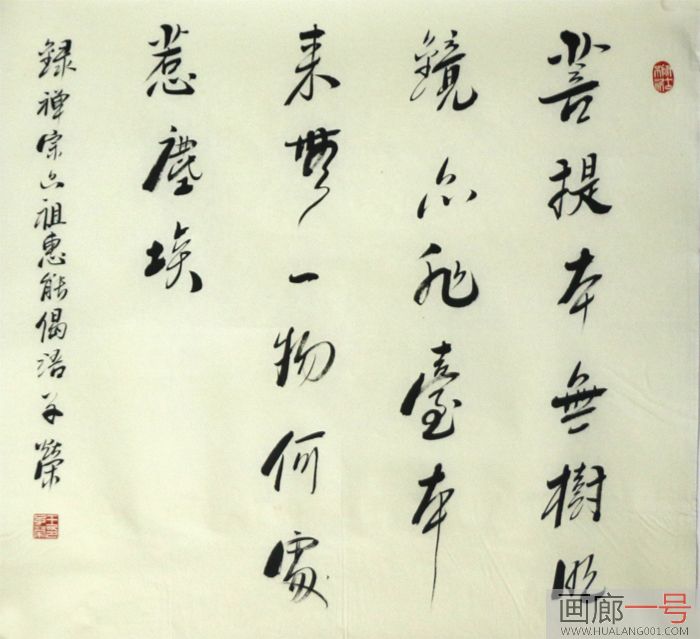 菩提本無樹明
鏡亦非臺本
来無一物何處
惹塵埃
録禪宗六祖惠能偈語
榮
画廊一号
WWW.HUALANG001.COM